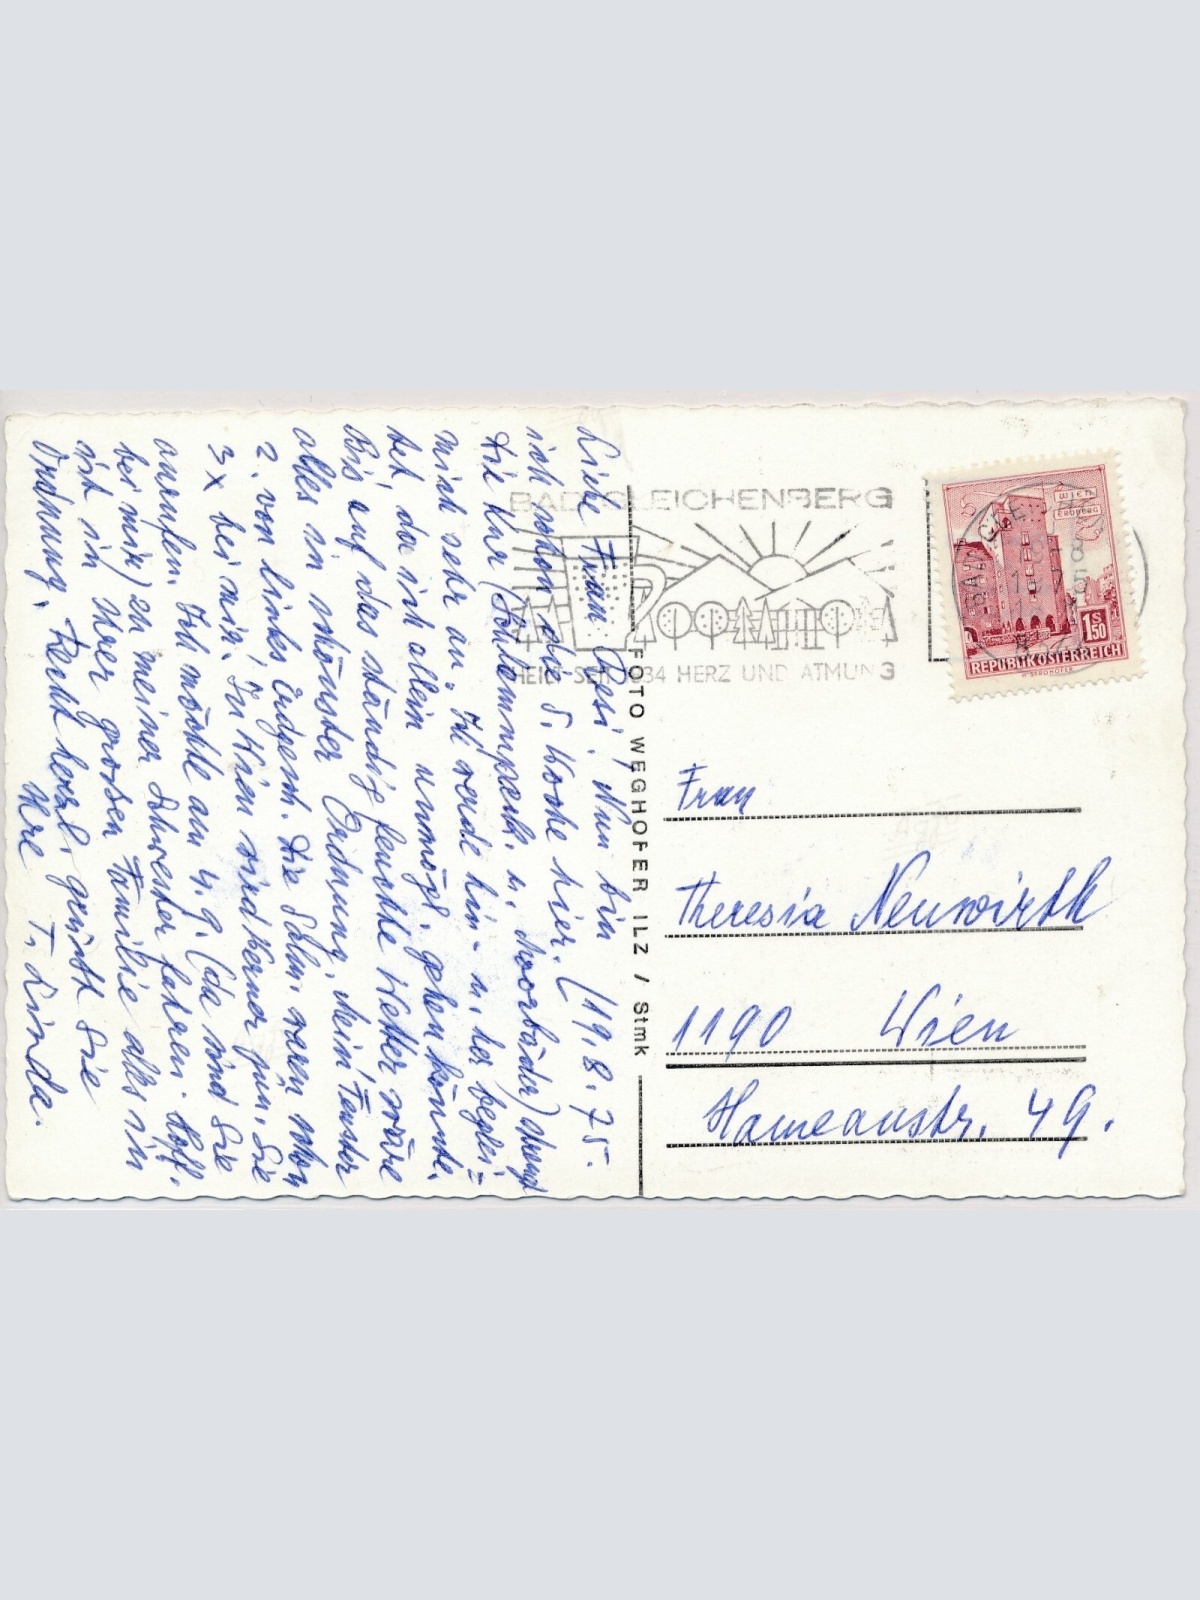 Liebe Frau Resi! Nun bin
ich schon die 5. Woche hier. (19.8.75.
Die Kur (Schlemmpack. u. Moorbäder)
mich sehr an. Ich werde hin- u. her beglei=
tet, da ich allein unmögl. gehen könnte.
Bis auf das ständig feuchte Wetter wäre
alles in schönster Ordnung. Mein Fenster
2. von links ebensch. Die Schw. waren schon
3x bei mir! In Wien wird Werner jun. Sie
anrufen. Ich möchte am 4.9. (da sind Sie
bei mir) zu meiner Schwester fahren. Hoff.
ist in Ihrer grossen Familie alles in
Ordnung. Recht herzl. grüsst Sie
Ihre T. Linda.
BAD GLEICHENBERG
HEILT SEIT 1834 HERZ UND ATMUNG
WIEN
ERDBERG
S 1.50
REPUBLIK ÖSTERREICH
FOTO WEGHOFER ILZ / Stmk
Frau
Theresia Neuwirth
1190 Wien
Hameaustr. 49.